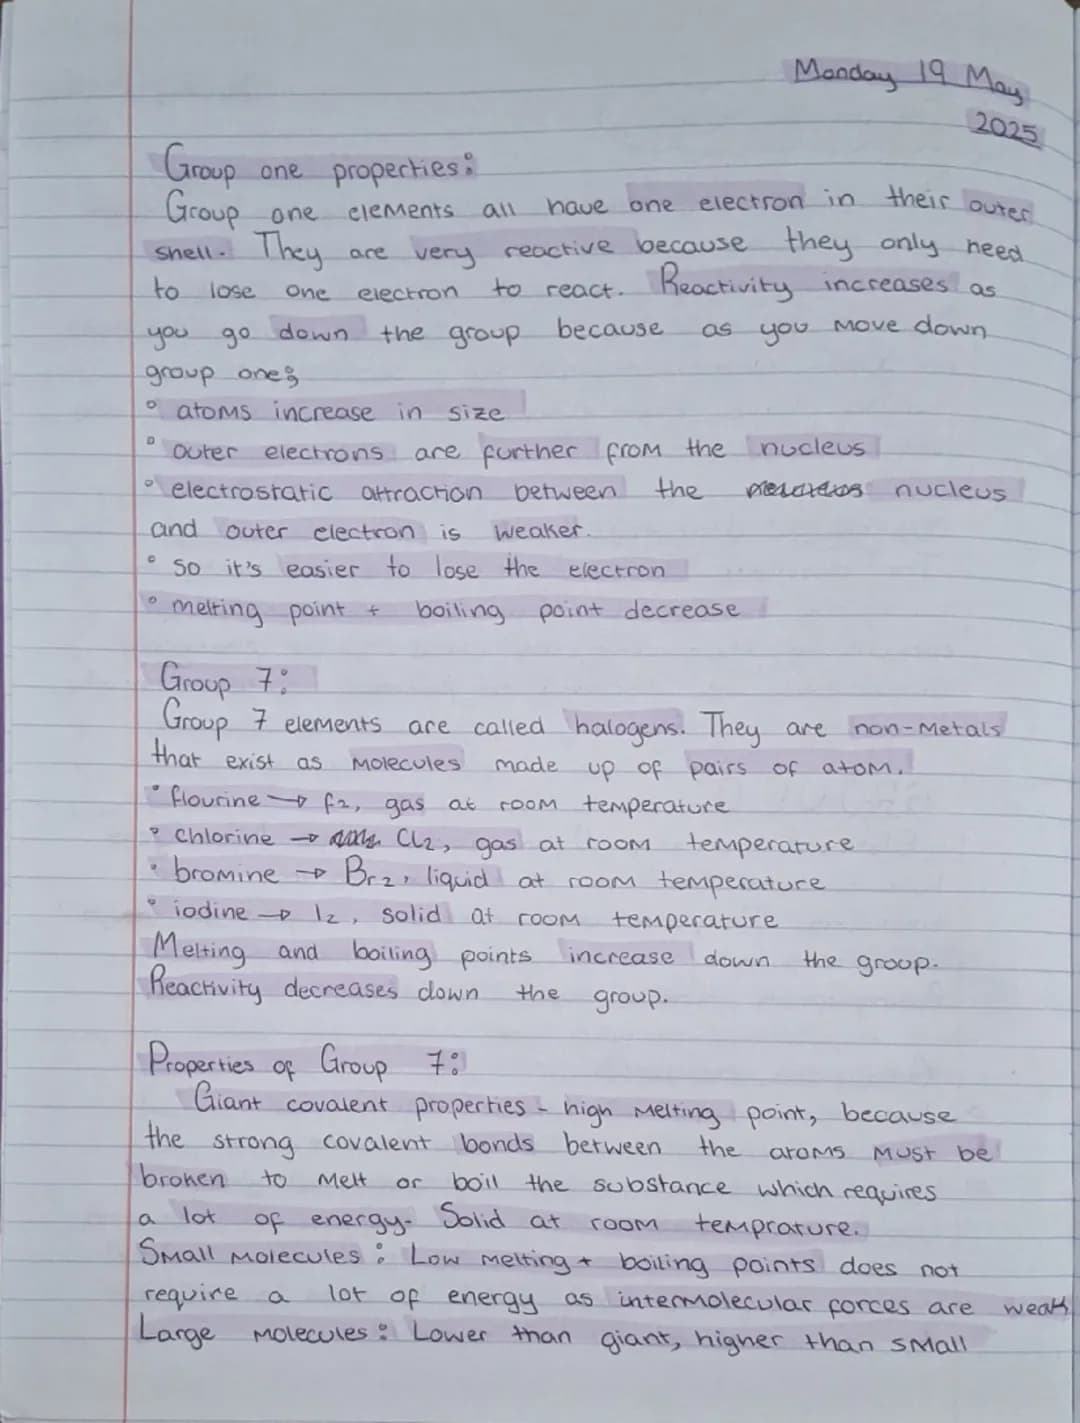 Monday 19 May
2025
Group one properties:
Group one elements all have one electron in their outer
shell. They are very reactive because they only need
to lose one electron to react. Reactivity increases as
you go down the group because as you move down
group one:
° atoms increase in size
° outer electrons are further from the nucleus
° electrostatic attraction between the nucleus
and outer electron is weaker.
° so it's easier to lose the electron
° melting point + boiling point decrease
Group 7:
Group 7 elements are called halogens. They are non-metals
that exist as molecules made up of pairs of atom.
° flourine → f2, gas at room temperature
° chlorine → Cl2, gas at room temperature
° bromine → Br2, liquid at room temperature
° iodine → I2, solid at room temperature
Melting and boiling points increase down the group.
Reactivity decreases down the group.
Properties of Group 7:
Giant covalent properties - high melting point, because
the strong covalent bonds between the atoms must be
broken to melt or boil the substance which requires
a lot of energy. Solid at room temprature.
Small molecules: Low melting + boiling points does not
require a lot of energy as intermolecular forces are weak
Large molecules: Lower than giant, higher than small